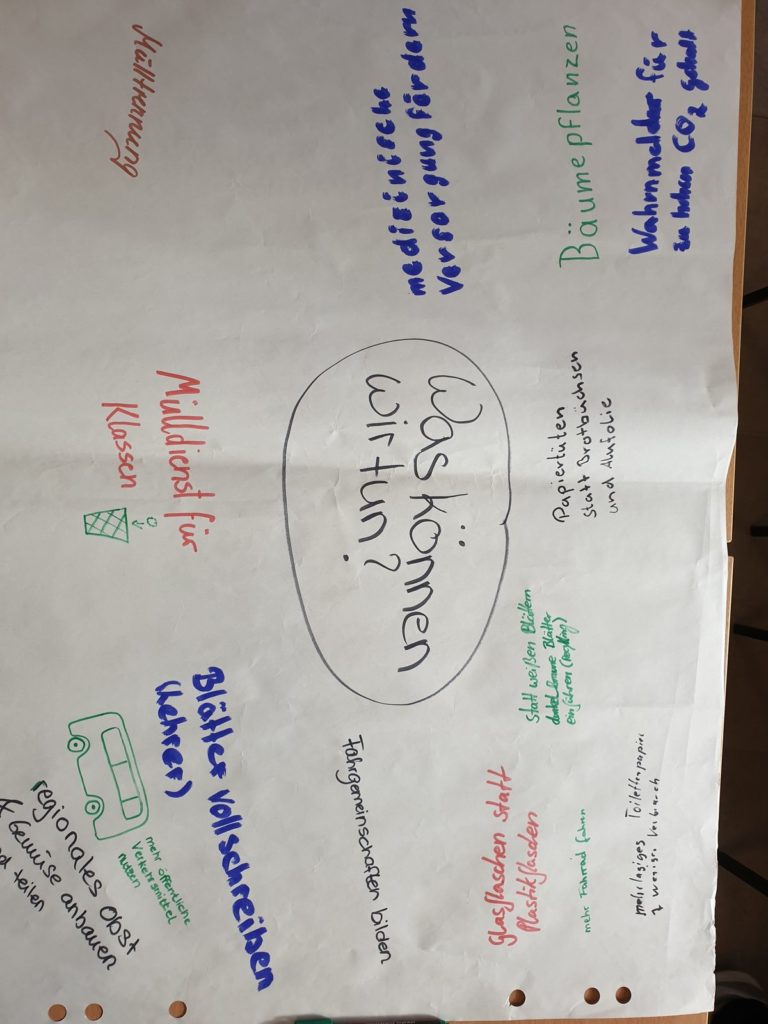 Wahrnmelder für
zu hohen CO₂ gehalt
Bäume pflanzen
medizinische
Versorgung fördern
Mülltrennung
Papiertüten
statt Brotbüchsen
und Alufolie
Was können
wir tun?
Mülldienst für
Klassen
statt weißen Blättern
dunkel braune Blätter
einführen
mehrlagiges Toilettenpapier
weniger Verbrauch
mehr Fahrrad fahren
Glasflaschen statt
Plastikflaschen
Fahrgemeinschaften bilden
Blätter vollschreiben
(Lehrer)
mehr öffentliche
Verkehrsmittel
nutzen
regionales Obst
& Gemüse anbauen
teilen